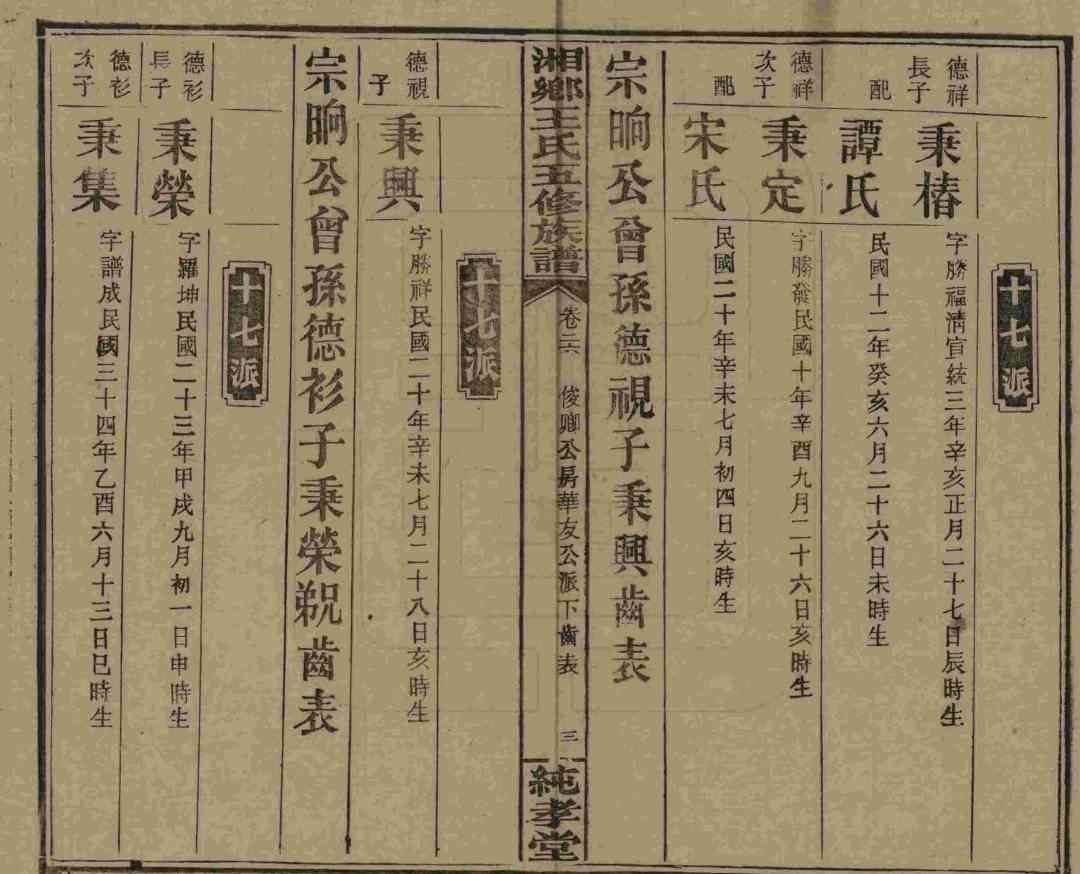 十七派
德祥長子
秉椿
字勝福清宣統三年辛亥正月二十七日辰時生
配
譚氏
民國十二年癸亥六月二十六日未時生
德祥次子
秉定
字勝發民國十年辛酉九月二十六日亥時生
配
宋氏
民國二十年辛未七月初四日亥時生
宗晌公曾孫德視子秉興齒表
湘鄉王氏五修族譜
卷二六
俊卿公房華友公派下齒表
三
純孝堂
十七派
德視子
秉興
字勝祥民國二十年辛未七月二十八日亥時生
宗晌公曾孫德衫子秉榮郳齒表
十七派
德衫長子
秉榮
字羅坤民國二十三年甲戌九月初一日申時生
德衫次子
秉集
字譜成民國三十四年乙酉六月十三日巳時生